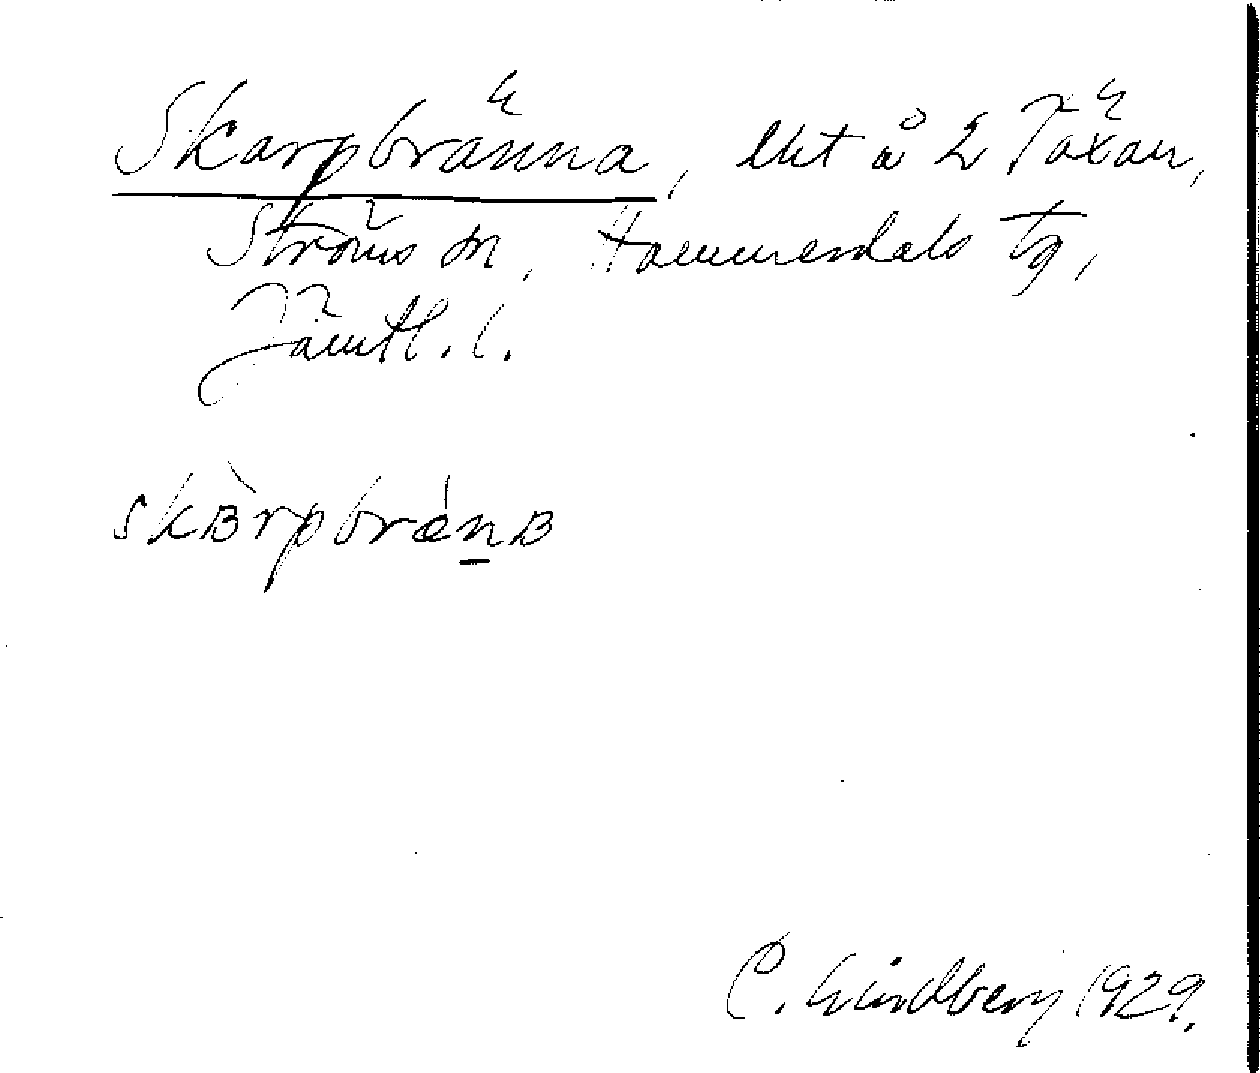 Skarpbränna, lht å 2 Täxan,
Ströms sn, Hammerdals tg,
Jämtl. l.
skàrpbrǽnа
C. Lindberg 1929.